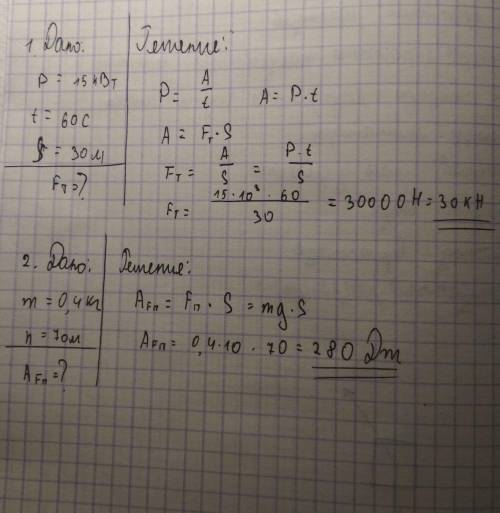 1. Дано:
P = 15 кВт
t = 60 с
S = 30 м
Fт = ?
Решение:
P = A/t    A = P·t
A = Fт · S
Fт = A/S = P·t/S
Fт = 15·10³·60/30 = 30000 Н = 30 кН
2. Дано:
m = 0,4 кг
h = 70 м
AFп = ?
Решение:
AFп = Fп · S = mg·S
AFп = 0,4·10·70 = 280 Дж